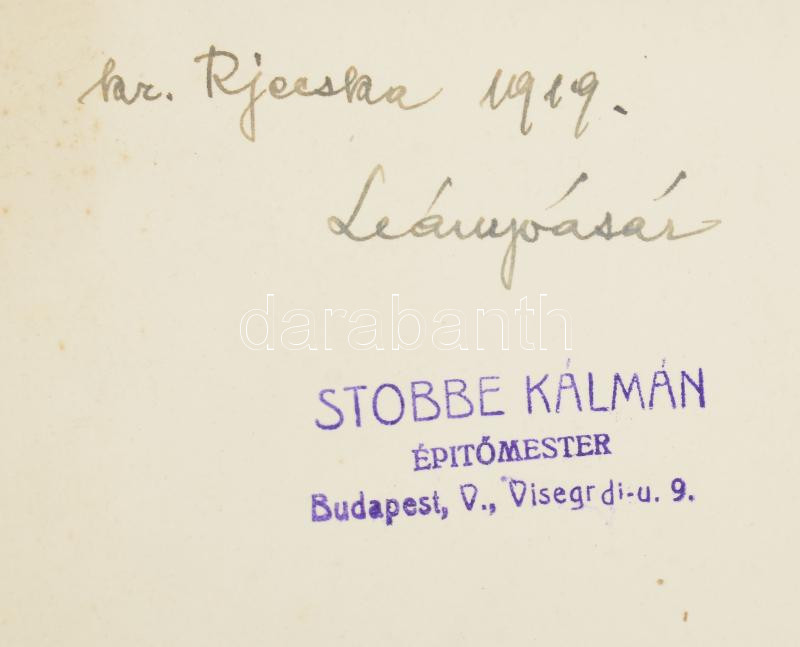 kr. Rjecska 1919.
Leányvásár
darabanth
STOBBE KÁLMÁN
ÉPITŐMESTER
Budapest, V., Visegrdi-u. 9.